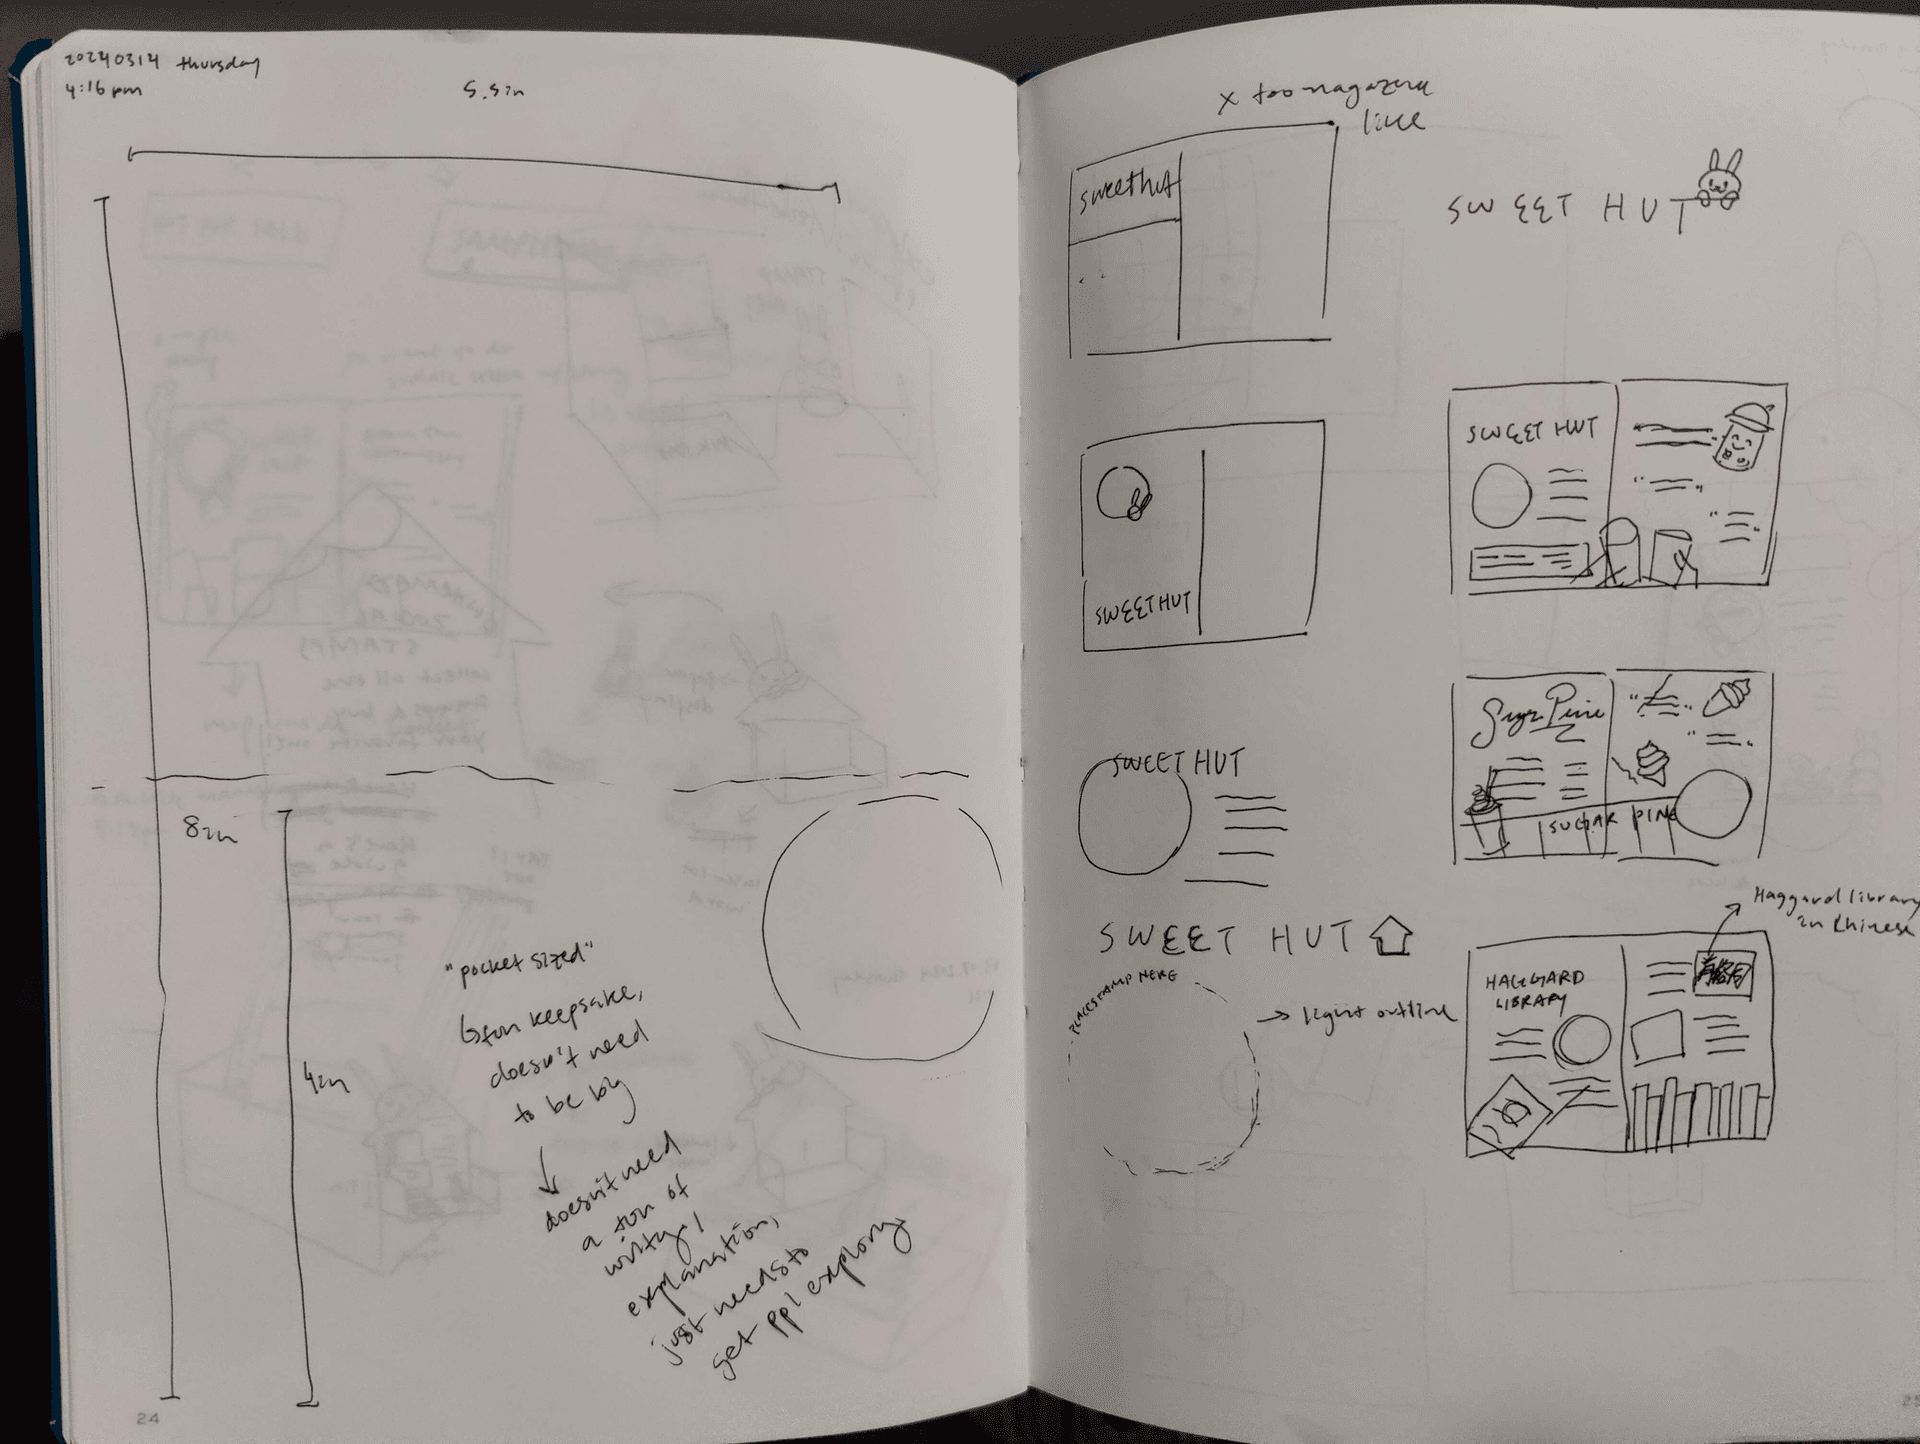 20240314 thursday
4:16pm
5.5in
8in
4in
"pocket sized"
fun keepsake,
doesn't need
to be big
doesn't need
a ton of
writing/
explanation,
just needs to
get ppl exploring
24
x too magazine
like
sweethut
SWEET HUT
SWEET HUT
SWEET HUT
SWEET HUT
SWEET HUT
PLACE STAMP HERE
→ light outline
Sugar Pine
SUGAR PINE
Haggard library
in Chinese
HAGGARD
LIBRARY
25